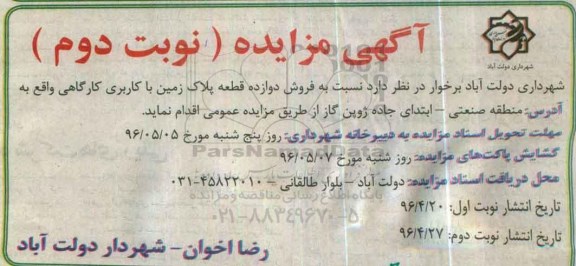 آگهی مزایده ( نوبت دوم )
شهرداری دولت آباد
شهرداری دولت آباد برخوار در نظر دارد نسبت به فروش دوازده قطعه پلاک زمین با کاربری کارگاهی واقع به
آدرس: منطقه صنعتی – ابتدای جاده زوپن گاز از طریق مزایده عمومی اقدام نماید.
مهلت تحویل اسناد مزایده به دبیرخانه شهرداری: روز پنج شنبه مورخ ۹۶/۰۵/۰۵
گشایش پاکت‌های مزایده: روز شنبه مورخ ۹۶/۰۵/۰۷
محل دریافت اسناد مزایده: دولت آباد – بلوار طالقانی – ۴۵۸۲۲۰۱۰-۰۳۱
تاریخ انتشار نوبت اول: ۹۶/۴/۲۰
تاریخ انتشار نوبت دوم: ۹۶/۴/۲۷
رضا اخوان – شهردار دولت آباد
ParsNamadData
پایگاه اطلاع رسانی مناقصه و مزایده
۰۲۱-۸۸۳۴۹۶۷۰-۵